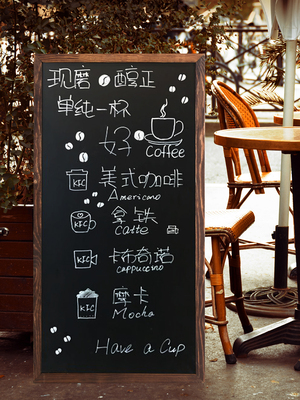 现磨 醇正
单纯一杯
好 Coffee
KIC 美式咖啡
Americano
KIC 拿铁
Latte
KIC 卡布奇诺
cappuccino
KIC 摩卡
Mocha
Have a Cup